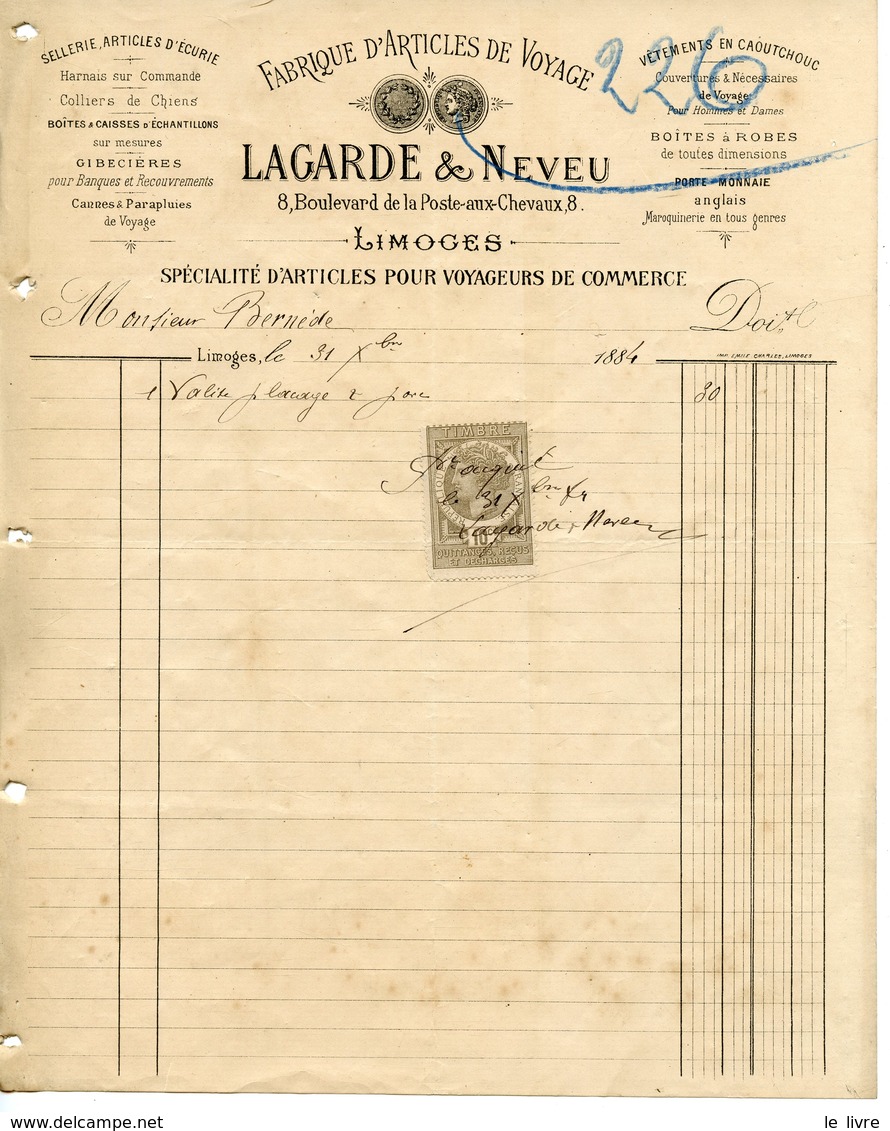 226
FABRIQUE D'ARTICLES DE VOYAGE
SELLERIE, ARTICLES D'ÉCURIE
Harnais sur Commande
Colliers de Chiens
BOÎTES & CAISSES D'ÉCHANTILLONS
sur mesures
GIBECIÈRES
pour Banques et Recouvrements
Cannes & Parapluies
de Voyage
LAGARDE & NEVEU
8, Boulevard de la Poste-aux-Chevaux, 8.
LIMOGES
VÊTEMENTS EN CAOUTCHOUC
Couvertures & Nécessaires
de Voyage
Pour Hommes et Dames
BOÎTES à ROBES
de toutes dimensions
PORTE-MONNAIE
anglais
Maroquinerie en tous genres
SPÉCIALITÉ D'ARTICLES POUR VOYAGEURS DE COMMERCE
Monsieur Bernède Doit
Limoges, le 31 Xbre 1884
IMP. EMILE CHARLES, LIMOGES
1 Valise placage porc 30
TIMBRE
RÉPUBLIQUE FRANÇAISE
Pr acquit
le 31 Xbre 84
Lagarde & Neveu
10
QUITTANCES, REÇUS
ET DÉCHARGES
le livre